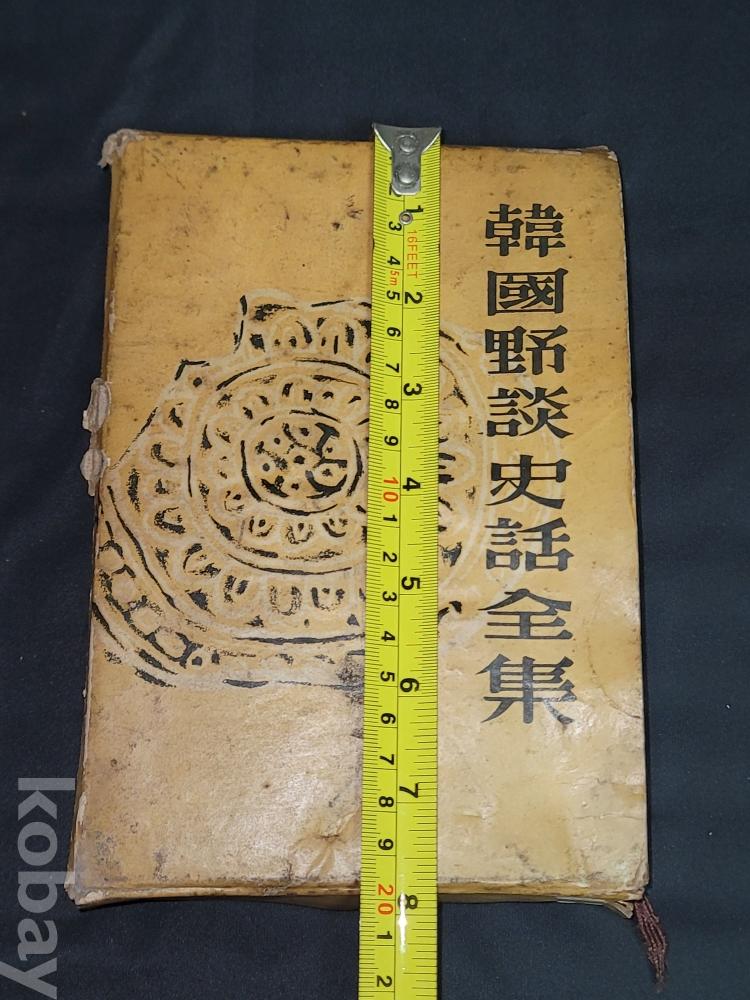 韓國野談史話全集
16FEET
5m
1
2
3
4
5
6
7
8
3
4
5
6
7
8
9
10
1
2
3
4
5
6
7
8
9
20
1
2
kobay